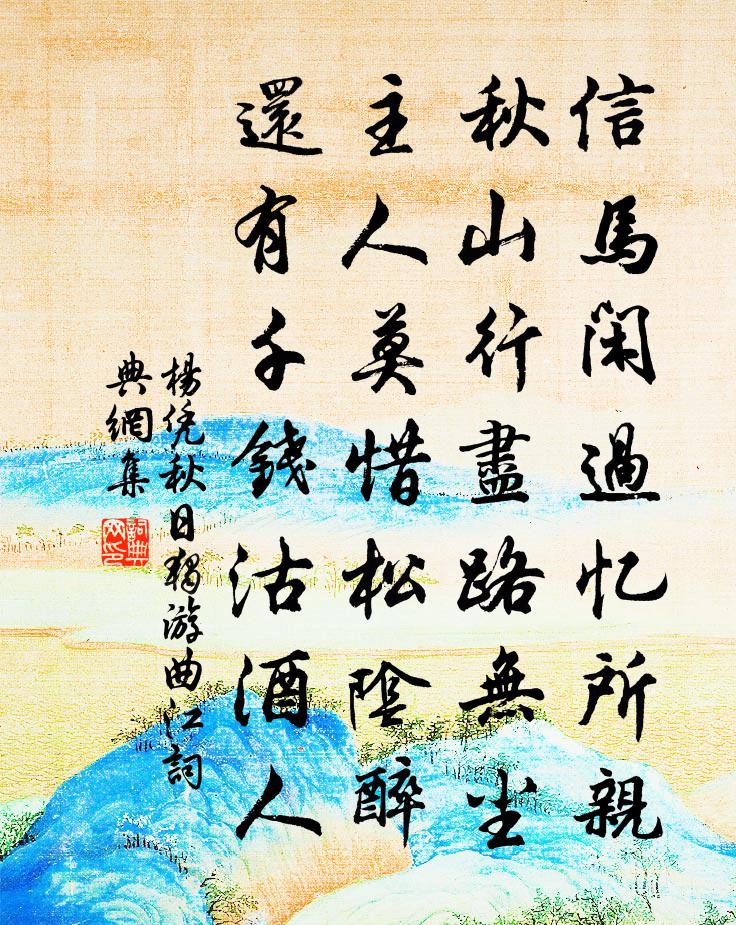 信馬閑過忆所親
秋山行盡路無尘
主人莫惜松陰醉
還有千錢沽酒人
楊凭秋日獨游曲江詞
典網集
詞典
网印